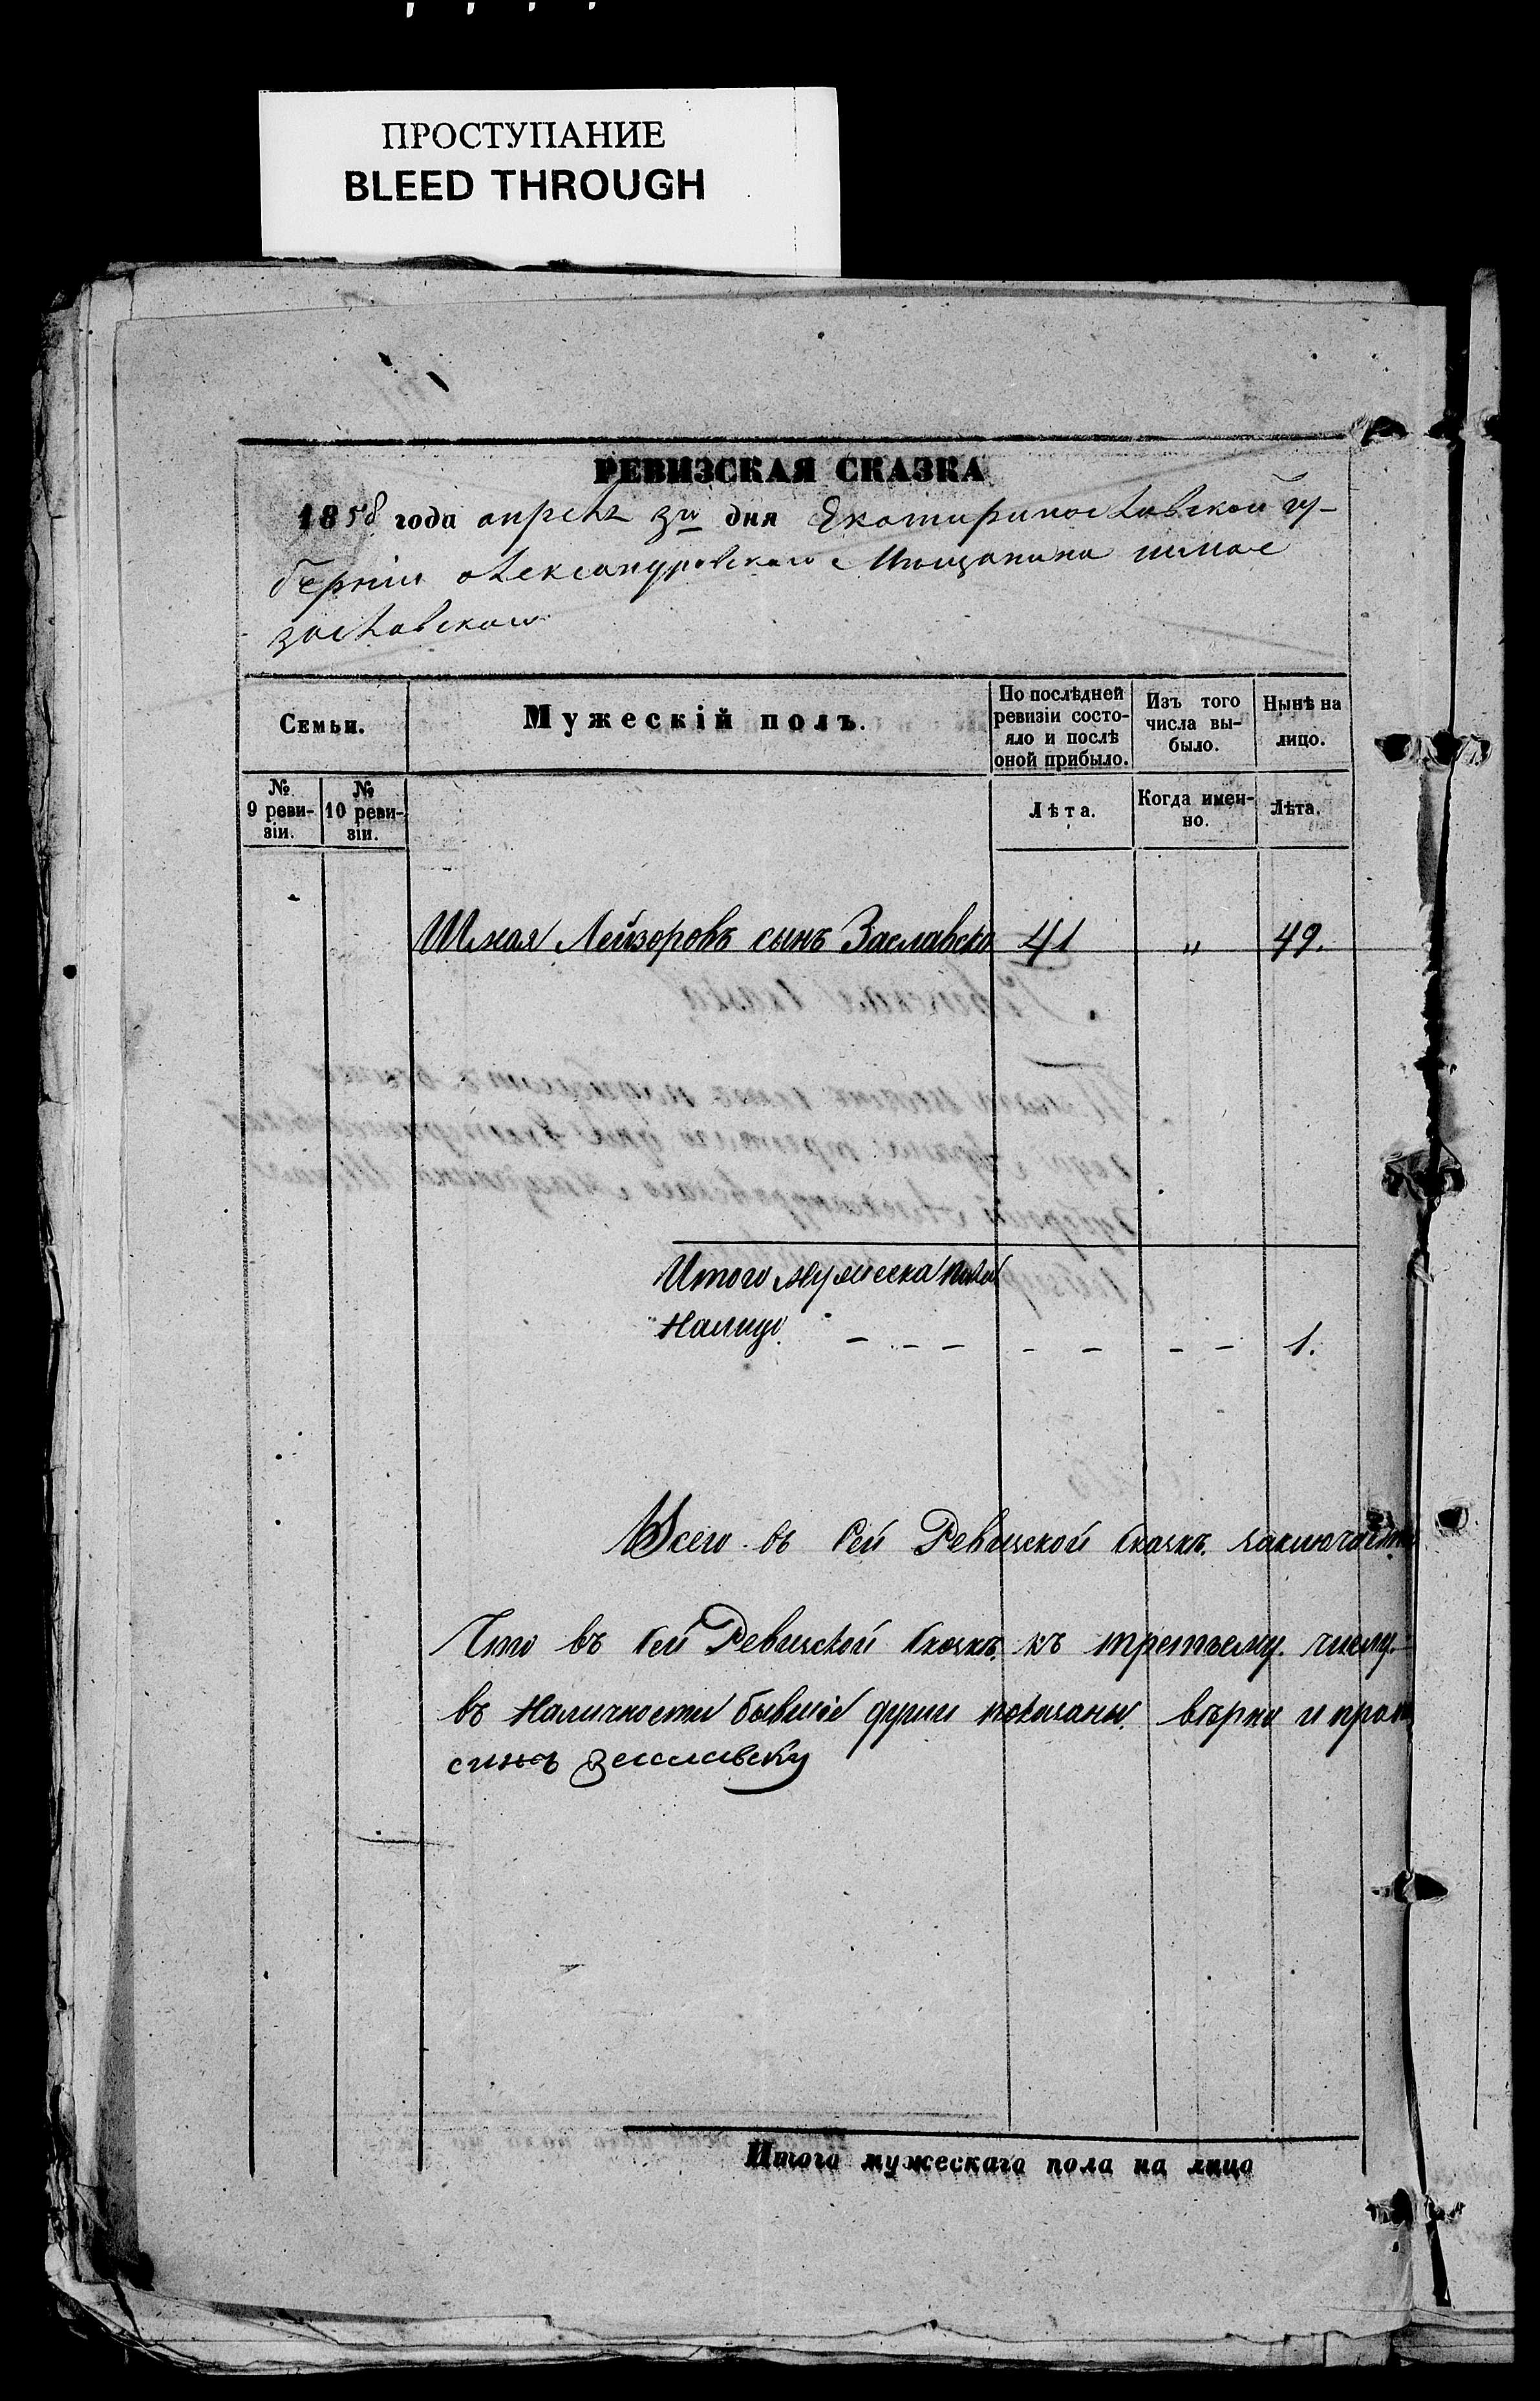 ПРОСТУПАНИЕ
BLEED THROUGH
РЕВИЗСКАЯ СКАЗКА
1858 года апреля 3го дня Екатеринославской гу-
берніи Александровскаго Мещанина шмае
заславскаго
Семьи.
Мужескій полъ.
По послѣдней ревизіи состо-
яло и послѣ
оной прибыло.
Изъ того
числа вы-
было.
Нынѣ на
лицо.
№
9 реви-
зіи.
№
10 реви-
зіи.
Лѣта.
Когда имен-
но.
Лѣта.
Шмая Лейзоровъ сынъ Заславско 41 „ 49.
Итого мужеска пола
Налицо. - - - - - - - - 1.
Всего въ Сей Ревизской Сказкѣ заключается
Что въ Сей Ревизской Сказкѣ къ третьему числу
въ Наличности бывшіе души показаны вѣрно и
синъ
Итого мужескаго пола на лицо